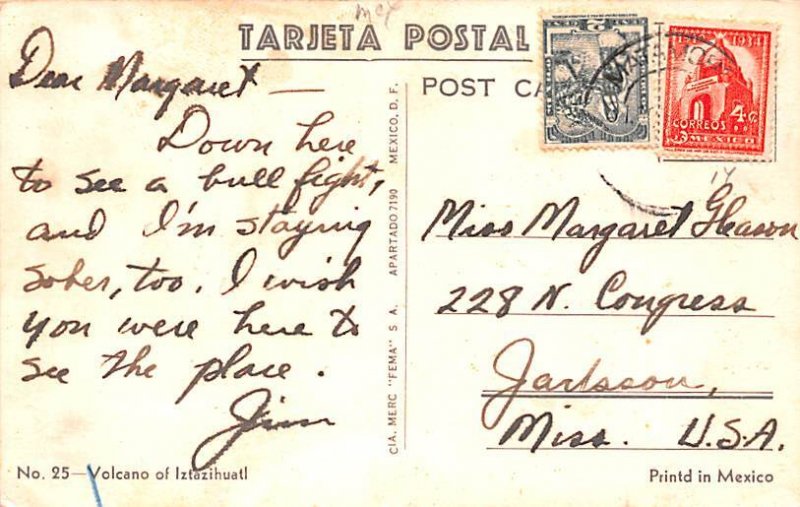 TARJETA POSTAL
POST CA
Dear Margaret —
Down here
to see a bull fight,
and I'm staying
sober, too. I wish
you were here to
see the place.
Jim
No. 25—Volcano of Iztazihuatl
CIA. MERC "FEMA" S A. APARTADO 7190 MEXICO, D. F.
2
1934
4¢
CORREOS
MEXICO
14
Miss Margaret Gleason
228 N. Congress
Jackson,
Miss. U.S.A.
Printd in Mexico